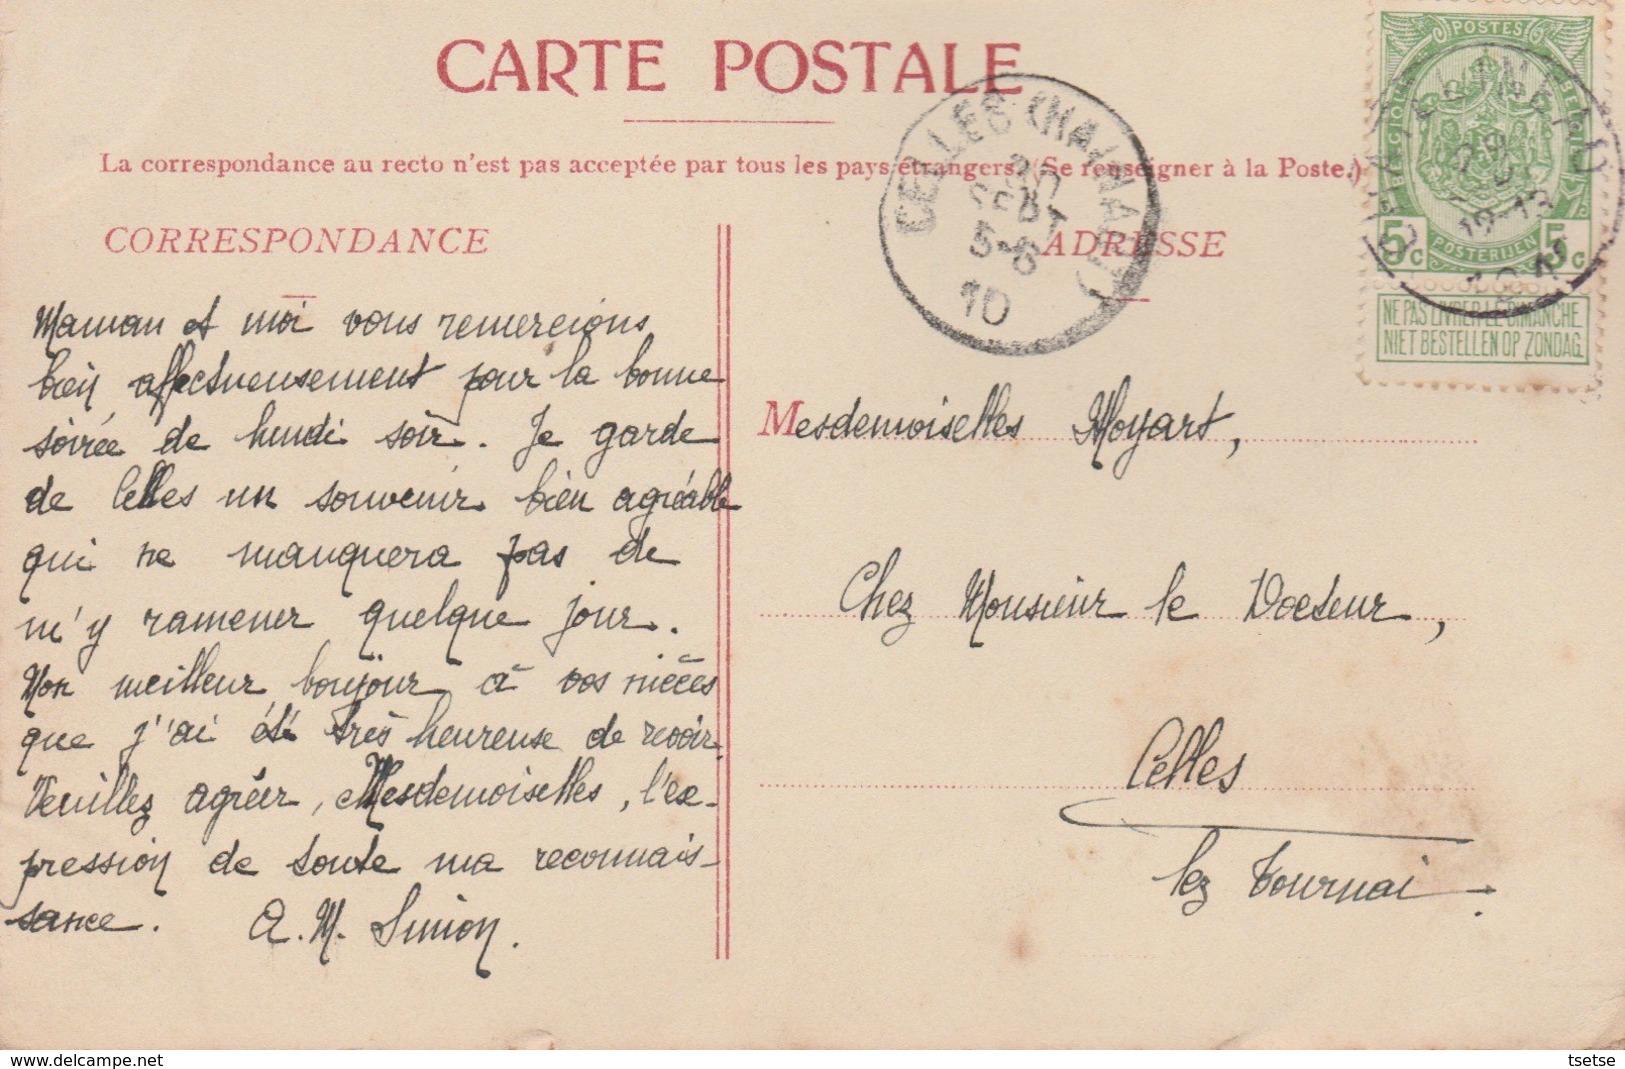 CARTE POSTALE
La correspondance au recto n'est pas acceptée par tous les pays étrangers. (Se renseigner à la Poste.)
CORRESPONDANCE
Maman et moi vous remercions
bien affectueusement pour la bonne
soirée de lundi soir. Je garde
de Celles un souvenir bien agréable
qui ne manquera pas de
m'y ramener quelque jour.
Mon meilleur bonjour à vos nièces
que j'ai été très heureuse de revoir.
Veuillez agréer, Mesdemoiselles, l'ex-
pression de toute ma reconnais-
sance. A. M. Simon.
ADRESSE
Mesdemoiselles Moyart,
Chez Monsieur le Docteur,
Celles
lez Tournai.
CELLES (HAINAUT)
SEPT
5-6
10
POSTES
BELGIQUE
BELGIË
5c POSTERIJEN 5c
NE PAS LIVRER LE DIMANCHE
NIET BESTELLEN OP ZONDAG
29
12-13
delcampe.net
tsetse